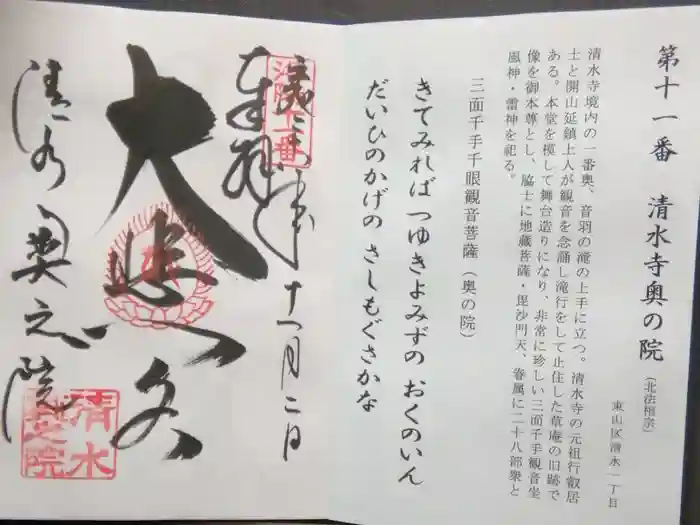 第十一番　清水寺奥の院（北法相宗）
東山区清水一丁目
清水寺境内の一番奥、音羽の滝の上手に立つ。清水寺の元祖行叡居
士と開山延鎮上人が観音を念誦し滝行をして止住した草庵の旧跡で
ある。本堂を模して舞台造りになり、非常に珍しい三面千手観音坐
像を御本尊とし、脇士に地蔵菩薩・毘沙門天、眷属に二十八部衆と
風神・雷神を祀る。
三面千手千眼観音菩薩（奥の院）
きてみれば つゆきよみずの おくのいん
だいひのかげの さしもぐさかな
奉拝
十一月二日
洛陽十一番
大悲
清水奥之院
清水
奥之院